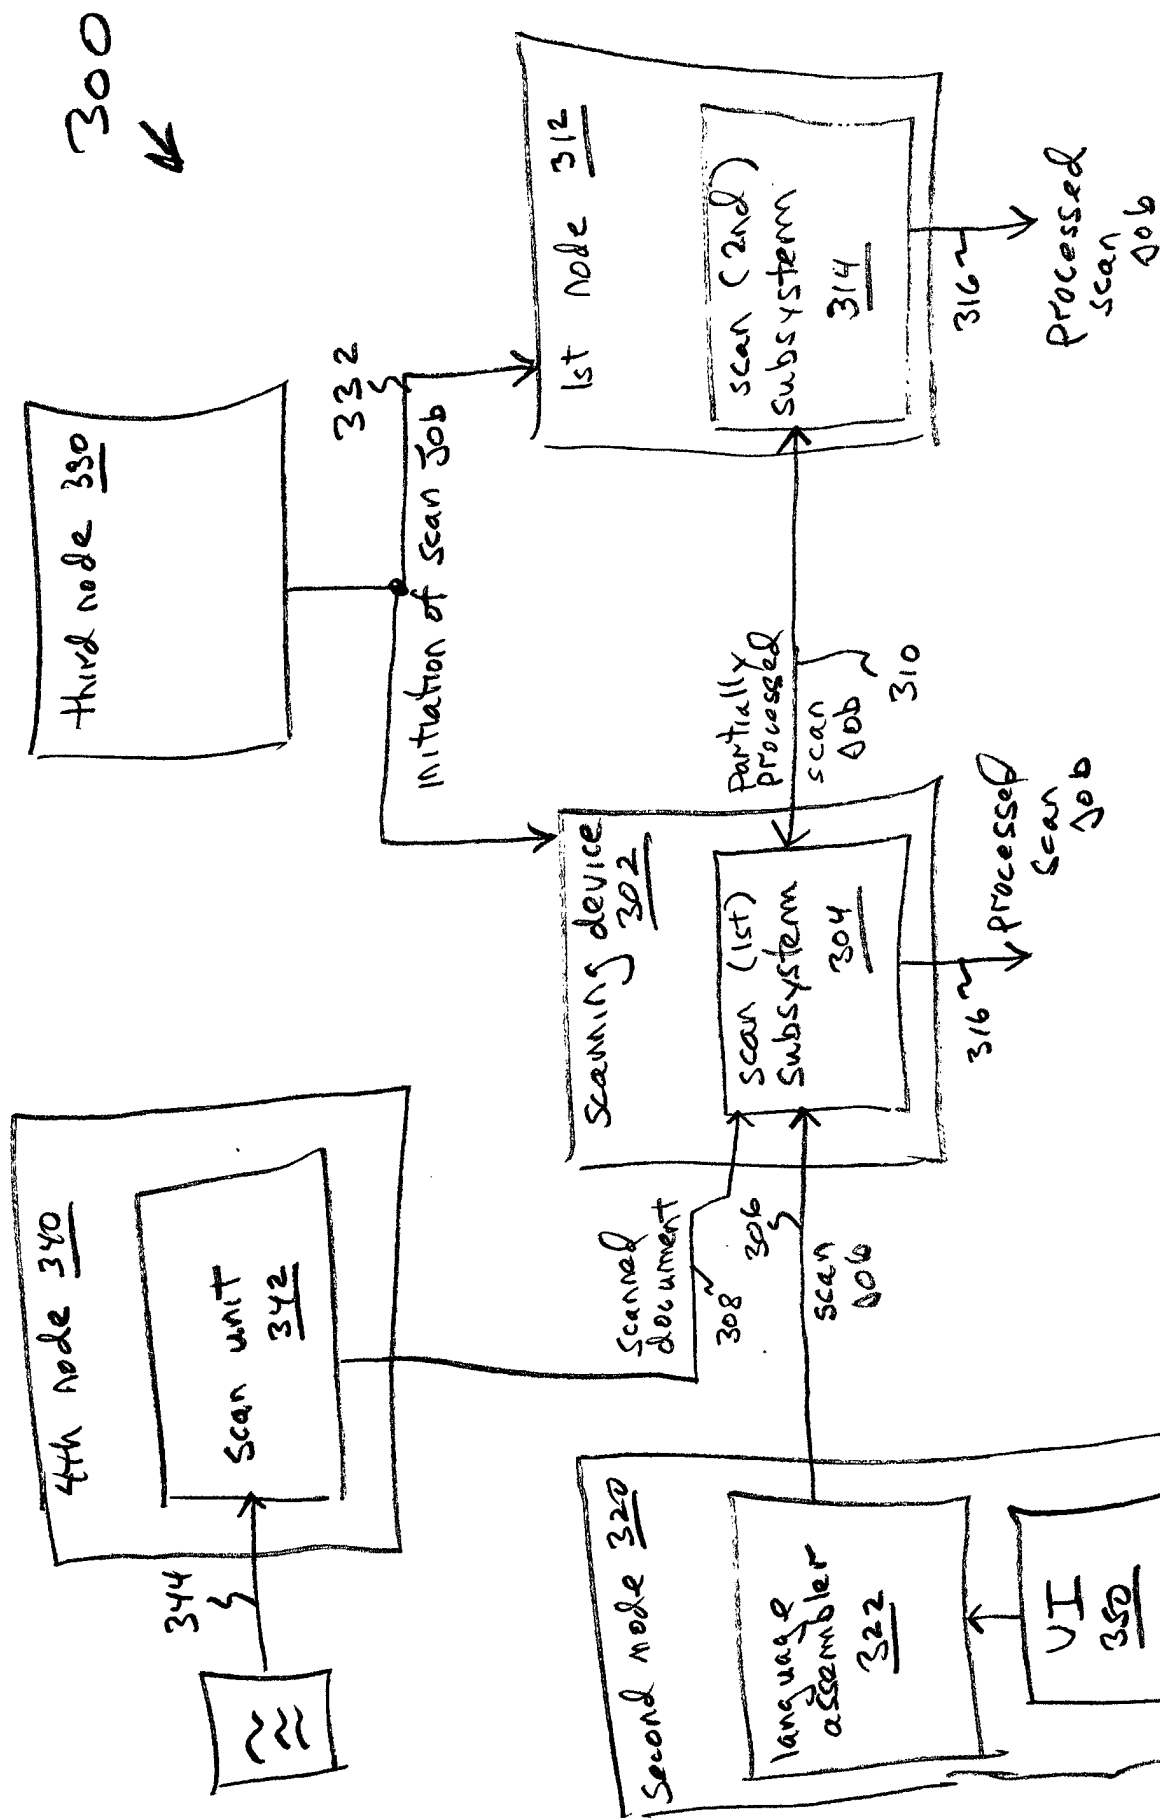 300
4th node 340
scan unit
342
344
third node 330
332
initiation of scan job
1st node 312
scan (2nd)
subsystem
314
316
processed
scan
job
Partially
processed
scan
job
310
scanning device
302
scan (1st)
subsystem
304
316
processed
scan
job
scanned
document
308
306
scan
job
second node 320
language
assembler
322
UI
350